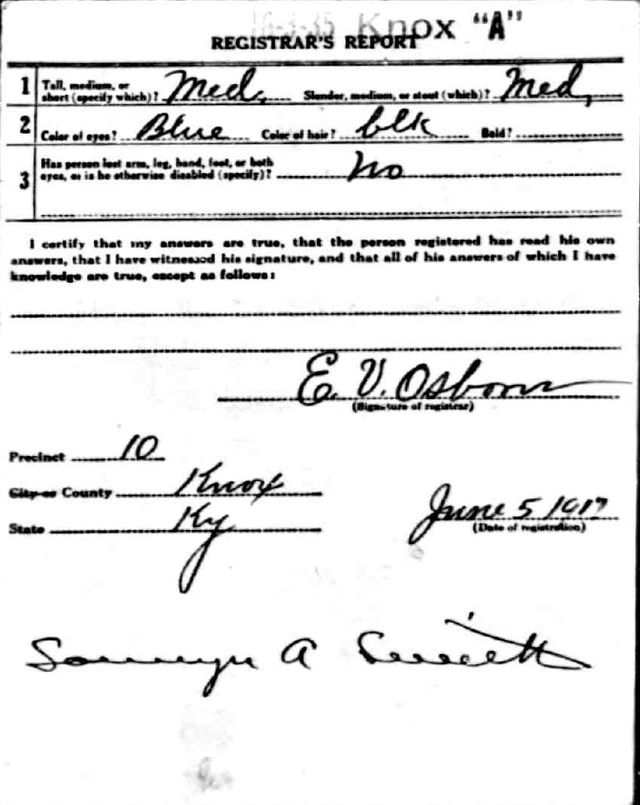 16-3-35 Knox "A"
REGISTRAR'S REPORT
1 Tall, medium, or short (specify which)? Med. Slender, medium, or stout (which)? Med,
2 Color of eyes? Blue Color of hair? blk Bald?
3 Has person lost arm, leg, hand, foot, or both
eyes, or is he otherwise disabled (specify)? No
I certify that my answers are true, that the person registered has read his own
answers, that I have witnessed his signature, and that all of his answers of which I have
knowledge are true, except as follows:
E. V. Osborn
(Signature of registrar)
Precinct 10
City or County Knox
State Ky
June 5 1917
(Date of registration)
A